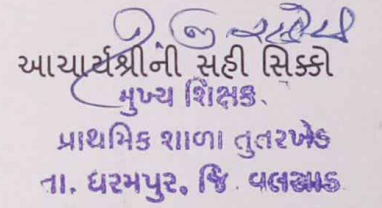 આચાર્યશ્રીની સહી સિક્કો
મુખ્ય શિક્ષક.
પ્રાથમિક શાળા તુતરખેડ
તા. ધરમપુર, જિ. વલસાડ